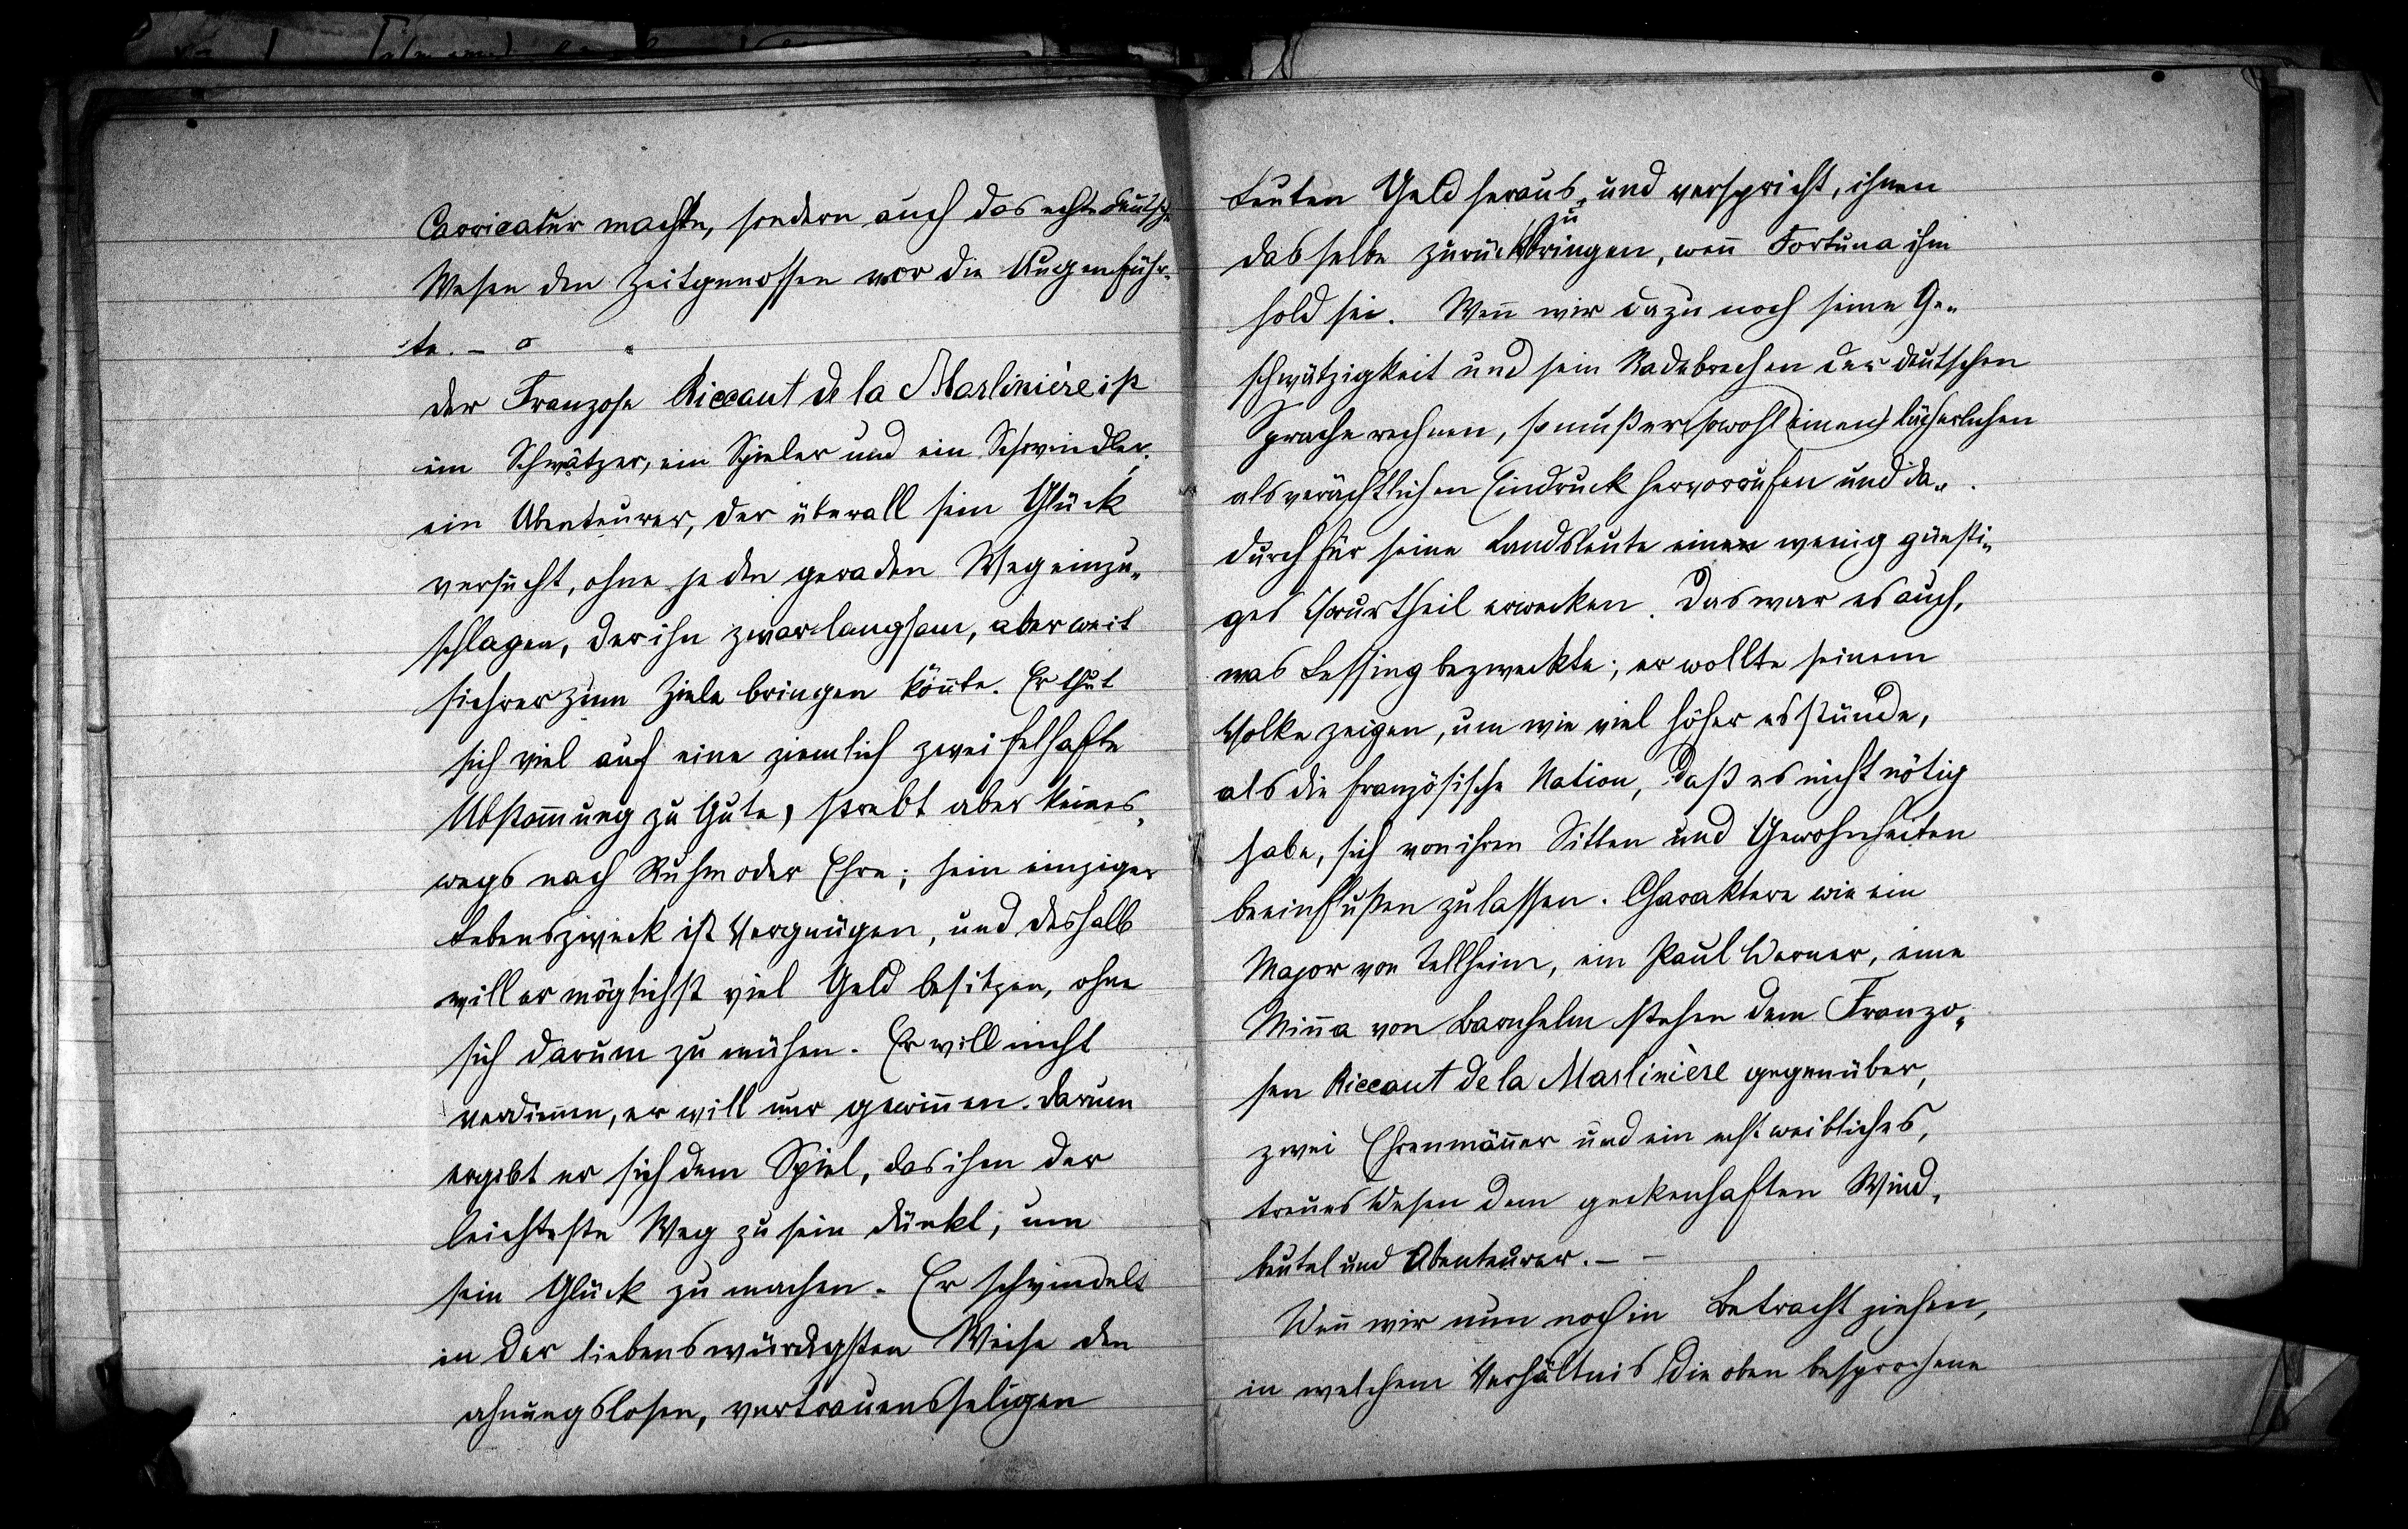 Carricatur machte, sondern auch das echte deutsche
Wesen den Zeitgenossen vor die Augen führ-
te. –
Der Franzose Riccaut de la Marlinière ist
ein Schwätzer, ein Spieler und ein Schwindler,
ein Abenteurer, der überall sein Glück
versucht, ohne je den geraden Weg einzu-
schlagen, der ihn zwar langsam, aber weit
sichrer zum Ziele bringen könnte. Er thut
sich viel auf eine ziemlich zweifelhafte
Abstammung zu Gute, strebt aber keines-
wegs nach Ruhm oder Ehre; sein einziger
Lebenszweck ist Vergnügen, und deshalb
will er möglichst viel Geld besitzen, ohne
sich darum zu mühen. Er will nicht
verdienen, er will nur gewinnen. Darum
ergibt er sich dem Spiel, das ihm der
leichteste Weg zu sein dünkt, um
sein Glück zu machen. Er schwindelt
in der liebenswürdigsten Weise den
ahnungslosen, vertrauensseligen
Leuten Geld heraus, und verspricht, ihnen
dasselbe zurückzubringen, wenn Fortuna ihm
hold sei. Wenn wir dazu noch seine Ge-
schwätzigkeit und sein Radebrechen der deutschen
Sprache rechnen, so muß er sowohl einen lächerlichen
als verächtlichen Eindruck hervorrufen und da-
durch für seine Landsleute ein wenig günsti-
ges Vorurtheil erwecken. Das war es auch,
was Lessing bezweckte; er wollte seinem
Volke zeigen, um wie viel höher es stünde,
als die französische Nation, daß es nicht nötig
habe, sich von ihren Sitten und Gewohnheiten
beeinflußen zu lassen. Charaktere wie ein
Major von Tellheim, ein Paul Werner, eine
Minna von Barnhelm stehen dem Franzo-
sen Riccaut de la Marlinière gegenüber,
zwei Ehrenmänner und ein echt weibliches,
treues Wesen dem geckenhaften Wind-
beutel und Abenteurer. – –
Wenn wir nun noch in Betracht ziehen,
in welchem Verhältnis die oben besprochene